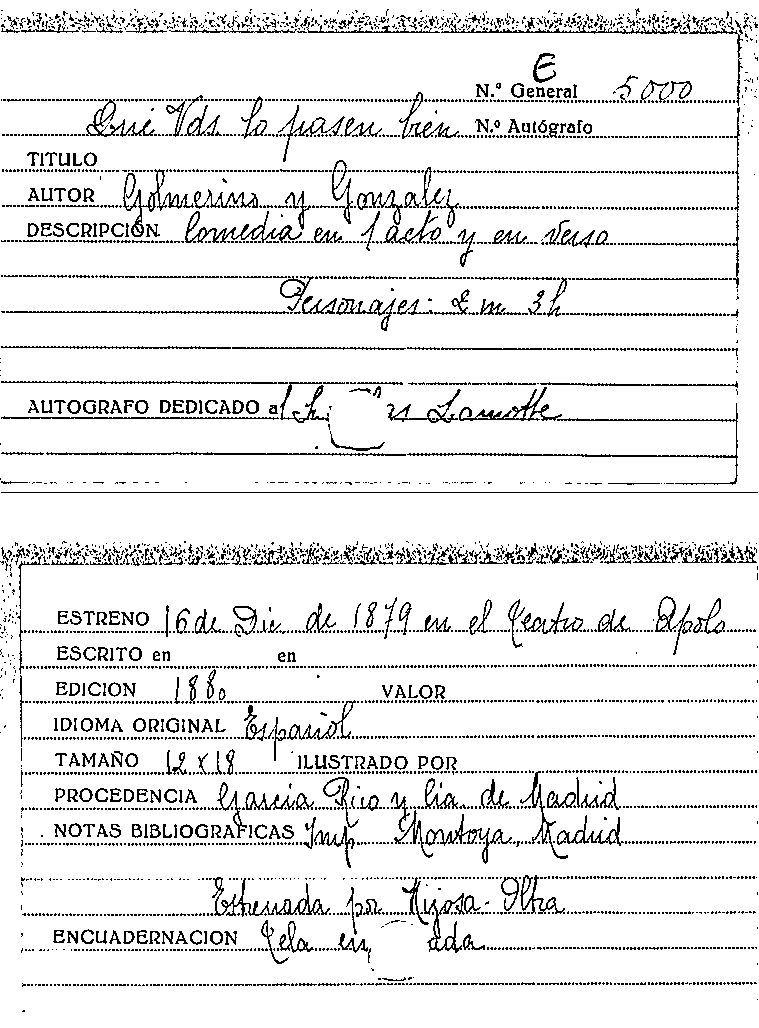 E
N.º General 5000
Qué Vds. lo pasen bien N.º Autógrafo
TITULO
AUTOR Golmerino y Gonzalez
DESCRIPCIÓN Comedia en 1 acto y en verso
Personajes: 2 m 3h
AUTOGRAFO DEDICADO al Lamotte
ESTRENO 16 de Dic de 1879 en el Teatro de Apolo
ESCRITO en en
EDICION 1880 VALOR
IDIOMA ORIGINAL Español
TAMAÑO 12 x 18 ILUSTRADO POR
PROCEDENCIA Garcia Rico y Cia de Madrid
NOTAS BIBLIOGRAFICAS Imp. Montoya, Madrid
Estrenada por Hijosa-
ENCUADERNACION Tela